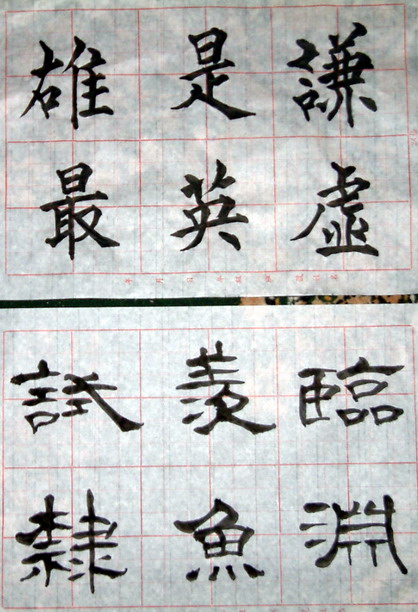 謙虛
是英
雄最
臨淵
羨魚
試隸